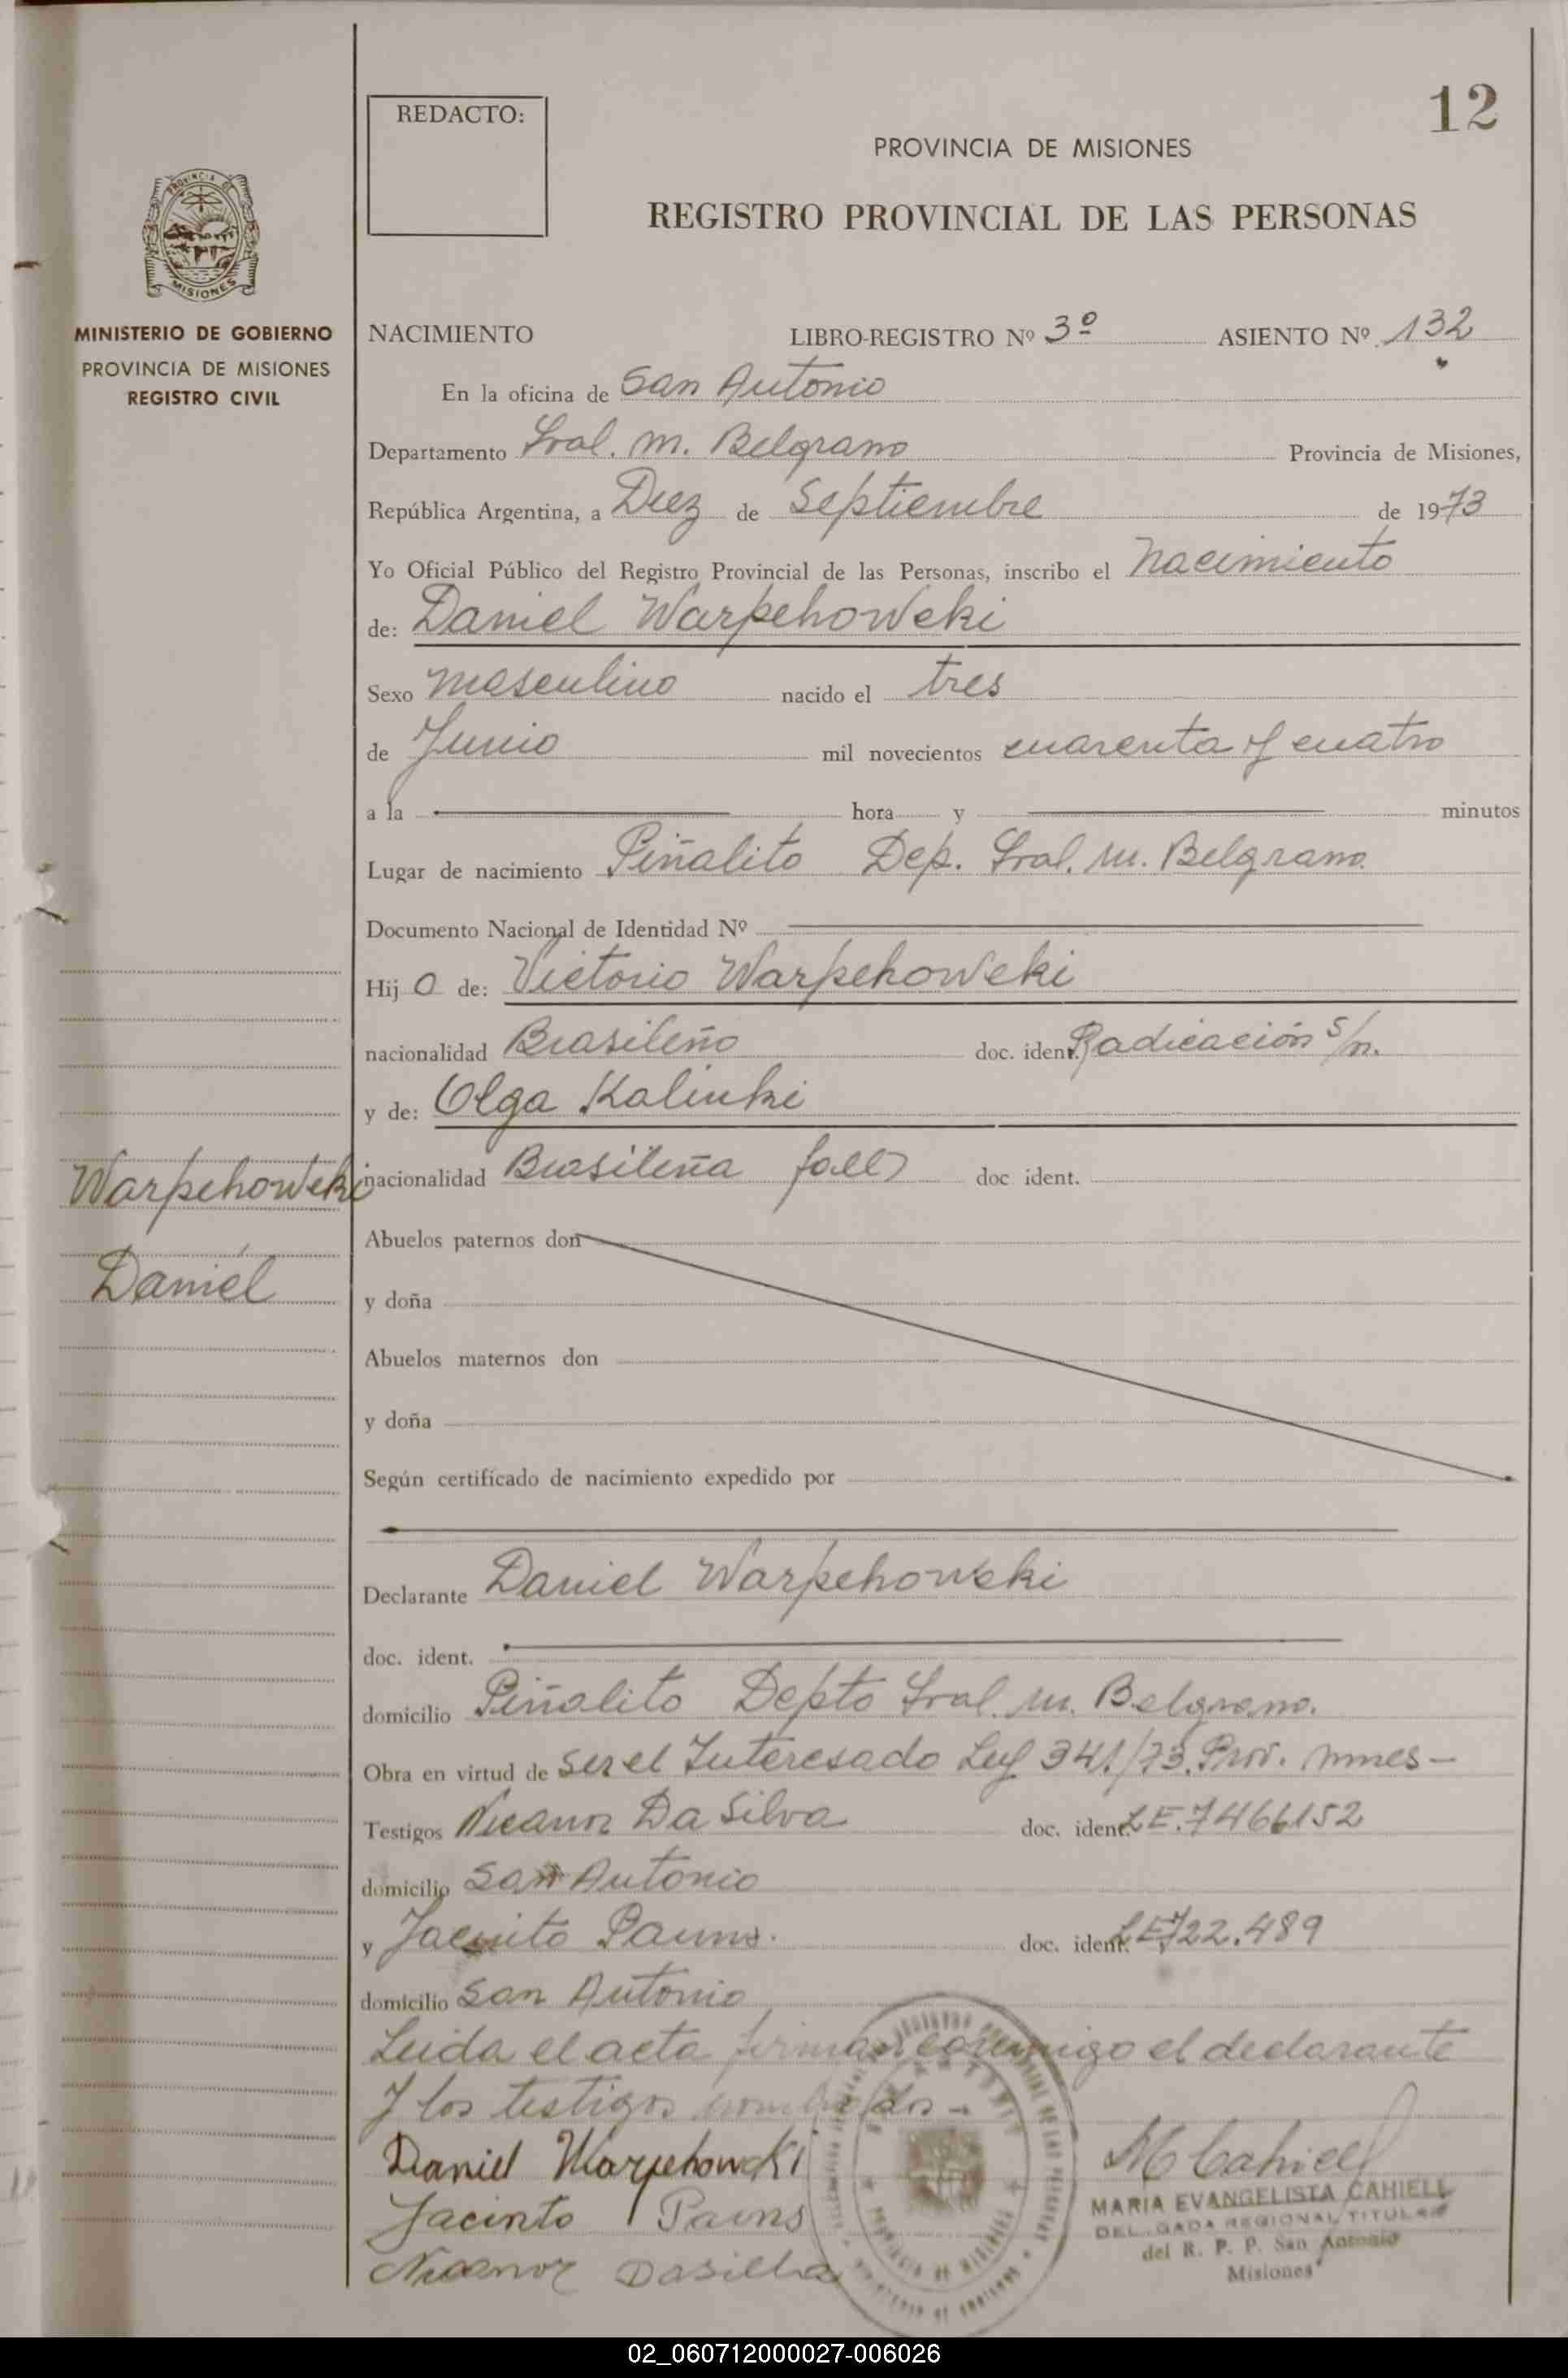 12
REDACTO:
PROVINCIA DE MISIONES
REGISTRO PROVINCIAL DE LAS PERSONAS
PROVINCIA DE
MISIONES
MINISTERIO DE GOBIERNO
PROVINCIA DE MISIONES
REGISTRO CIVIL
NACIMIENTO LIBRO-REGISTRO Nº 3º ASIENTO Nº 132
En la oficina de San Antonio
Departamento Gral. M. Belgrano Provincia de Misiones,
República Argentina, a Diez de Septiembre de 1973
Yo Oficial Público del Registro Provincial de las Personas, inscribo el Nacimiento
de: Daniel Warpehowski
Sexo masculino nacido el tres
de Junio mil novecientos cuarenta y cuatro
a la hora y minutos
Lugar de nacimiento Piñalito Dep. Gral. M. Belgrano.
Documento Nacional de Identidad Nº
Hijo de: Victorio Warpehowski
nacionalidad Brasileño doc. ident. Radicación s/n.
y de: Olga Kalinki
nacionalidad Brasileña fall doc ident.
Warpehowski
Daniel
Abuelos paternos don
y doña
Abuelos maternos don
y doña
Según certificado de nacimiento expedido por
Declarante Daniel Warpehowski
doc. ident.
domicilio Piñalito Depto Gral. M. Belgrano.
Obra en virtud de ser el Interesado Ley 341/73. Prov. Mnes-
Testigos Nicanor Da Silva doc. ident. L.E. 7466152
domicilio San Antonio
y Jacinto Pains. doc. ident. 722.489
domicilio San Antonio
Leida el acta firman conmigo el declarante
y los testigos nombrados -
Daniel Warpehowski
Jacinto Pains
Nicanor Dasilba
M Cahiell
MARIA EVANGELISTA CAHIELL
DELEGADA REGIONAL TITULAR
del R. P. P. San Antonio
Misiones
02_060712000027-006026